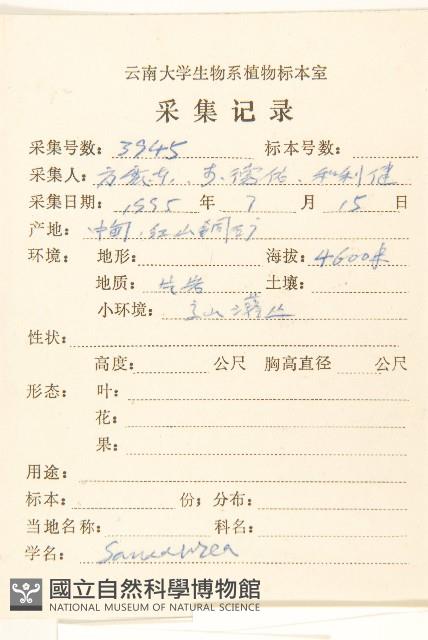 云南大学生物系植物标本室
采集记录
采集号数: 3945 标本号数:
采集人: 方 、 李德 、和利健
采集日期: 1995 年 7 月 15 日
产地: 中甸.红山铜矿
环境: 地形: 海拔: 4600米
地质: 片岩 土壤:
小环境: 高山灌丛
性状:
高度: 公尺 胸高直径 公尺
形态: 叶:
花:
果:
用途:
标本: 份; 分布:
当地名称: 科名:
学名: Saussurea
國立自然科學博物館
NATIONAL MUSEUM OF NATURAL SCIENCE